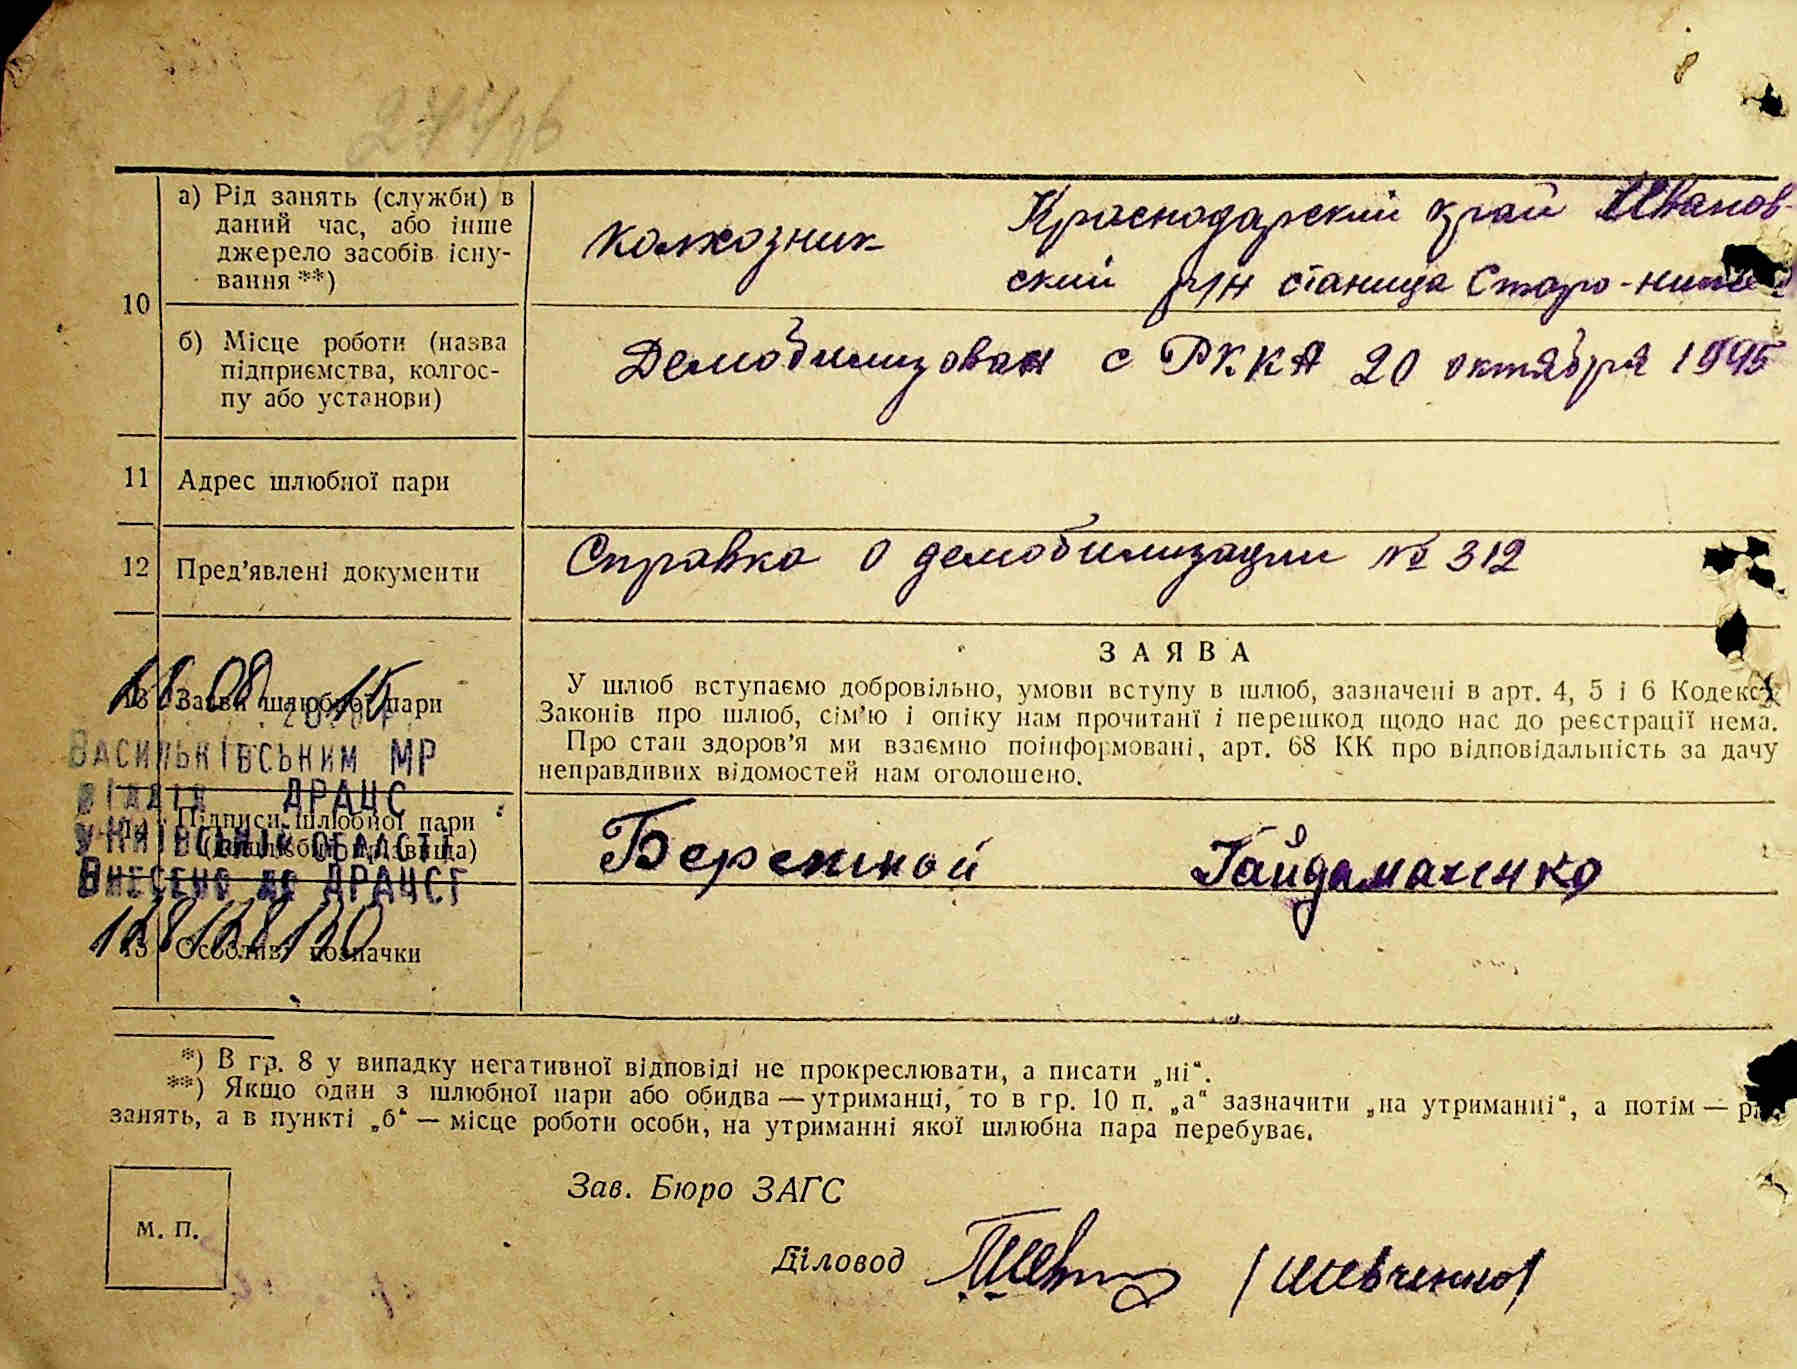 10
а) Рід занять (служби) в
даний час, або інше
джерело засобів існу-
вання **)
колхозник
Краснодарский край Иванов-
ский р/н станица Старо-
б) Місце роботи (назва
підприємства, колгос-
пу або установи)
Демобилизован с РККА 20 октября 1945
11 Адрес шлюбної пари
12 Пред'явлені документи
Справка о демобилизации № 312
13 Заяви шлюбної пари
ЗАЯВА
У шлюб вступаємо добровільно, умови вступу в шлюб, зазначені в арт. 4, 5 і 6 Кодексу
Законів про шлюб, сім'ю і опіку нам прочитані і перешкод щодо нас до реєстрації нема.
Про стан здоров'я ми взаємно поінформовані, арт. 68 КК про відповідальність за дачу
неправдивих відомостей нам оголошено.
08 15
Васильківським МР
відділ ДРАЦС
у Київській області
Внесено до ДРАЦСГ
14 Підписи шлюбної пари
Бережной Гайдамаченко
15 Особливі позначки
*) В гр. 8 у випадку негативної відповіді не прокреслювати, а писати „ні“.
**) Якщо один з шлюбної пари або обидва — утриманці, то в гр. 10 п. „а“ зазначити „на утриманні“, а потім —
занять, а в пункті „б“ — місце роботи особи, на утриманні якої шлюбна пара перебуває.
М. П.
Зав. Бюро ЗАГС
Діловод
(Шевченко)